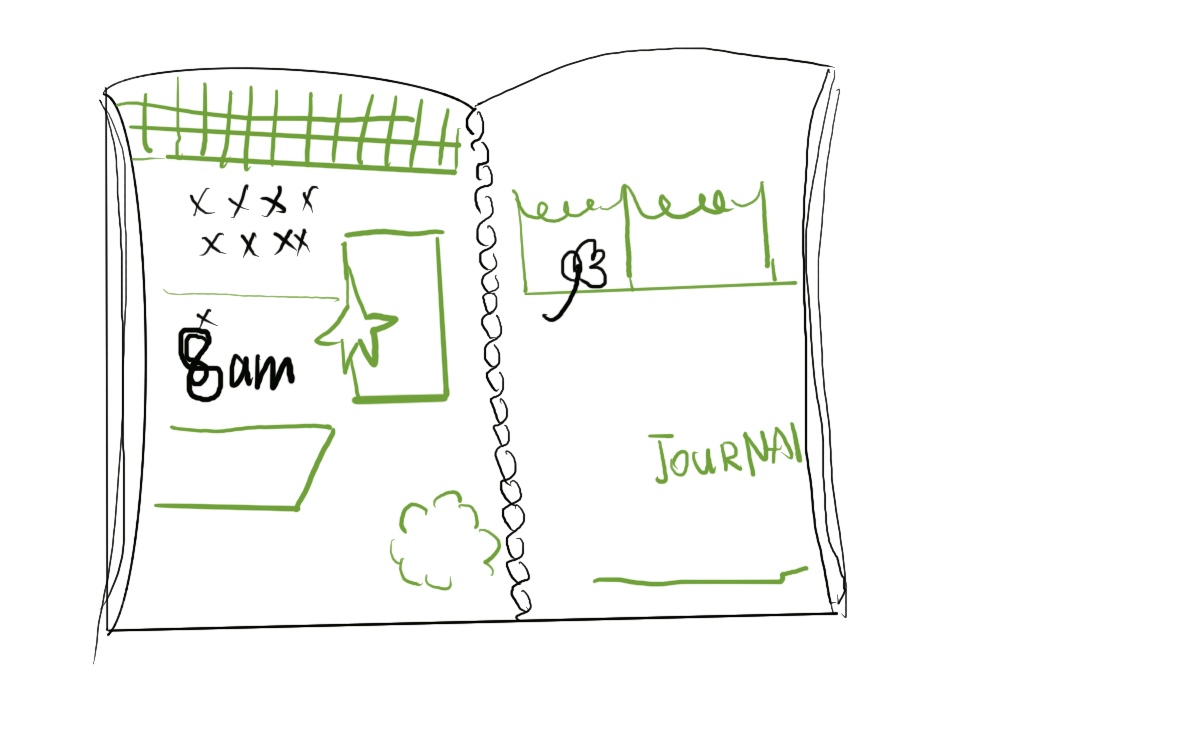 x x x x
x x xx
x
8am
JOURNAl